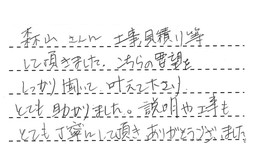 森山さんに 工事見積り等
して頂きました。こちらの要望を
しっかり聞いて 叶えて下さり
とても助かりました。説明や工事も
とても丁寧にして頂き ありがとうございました